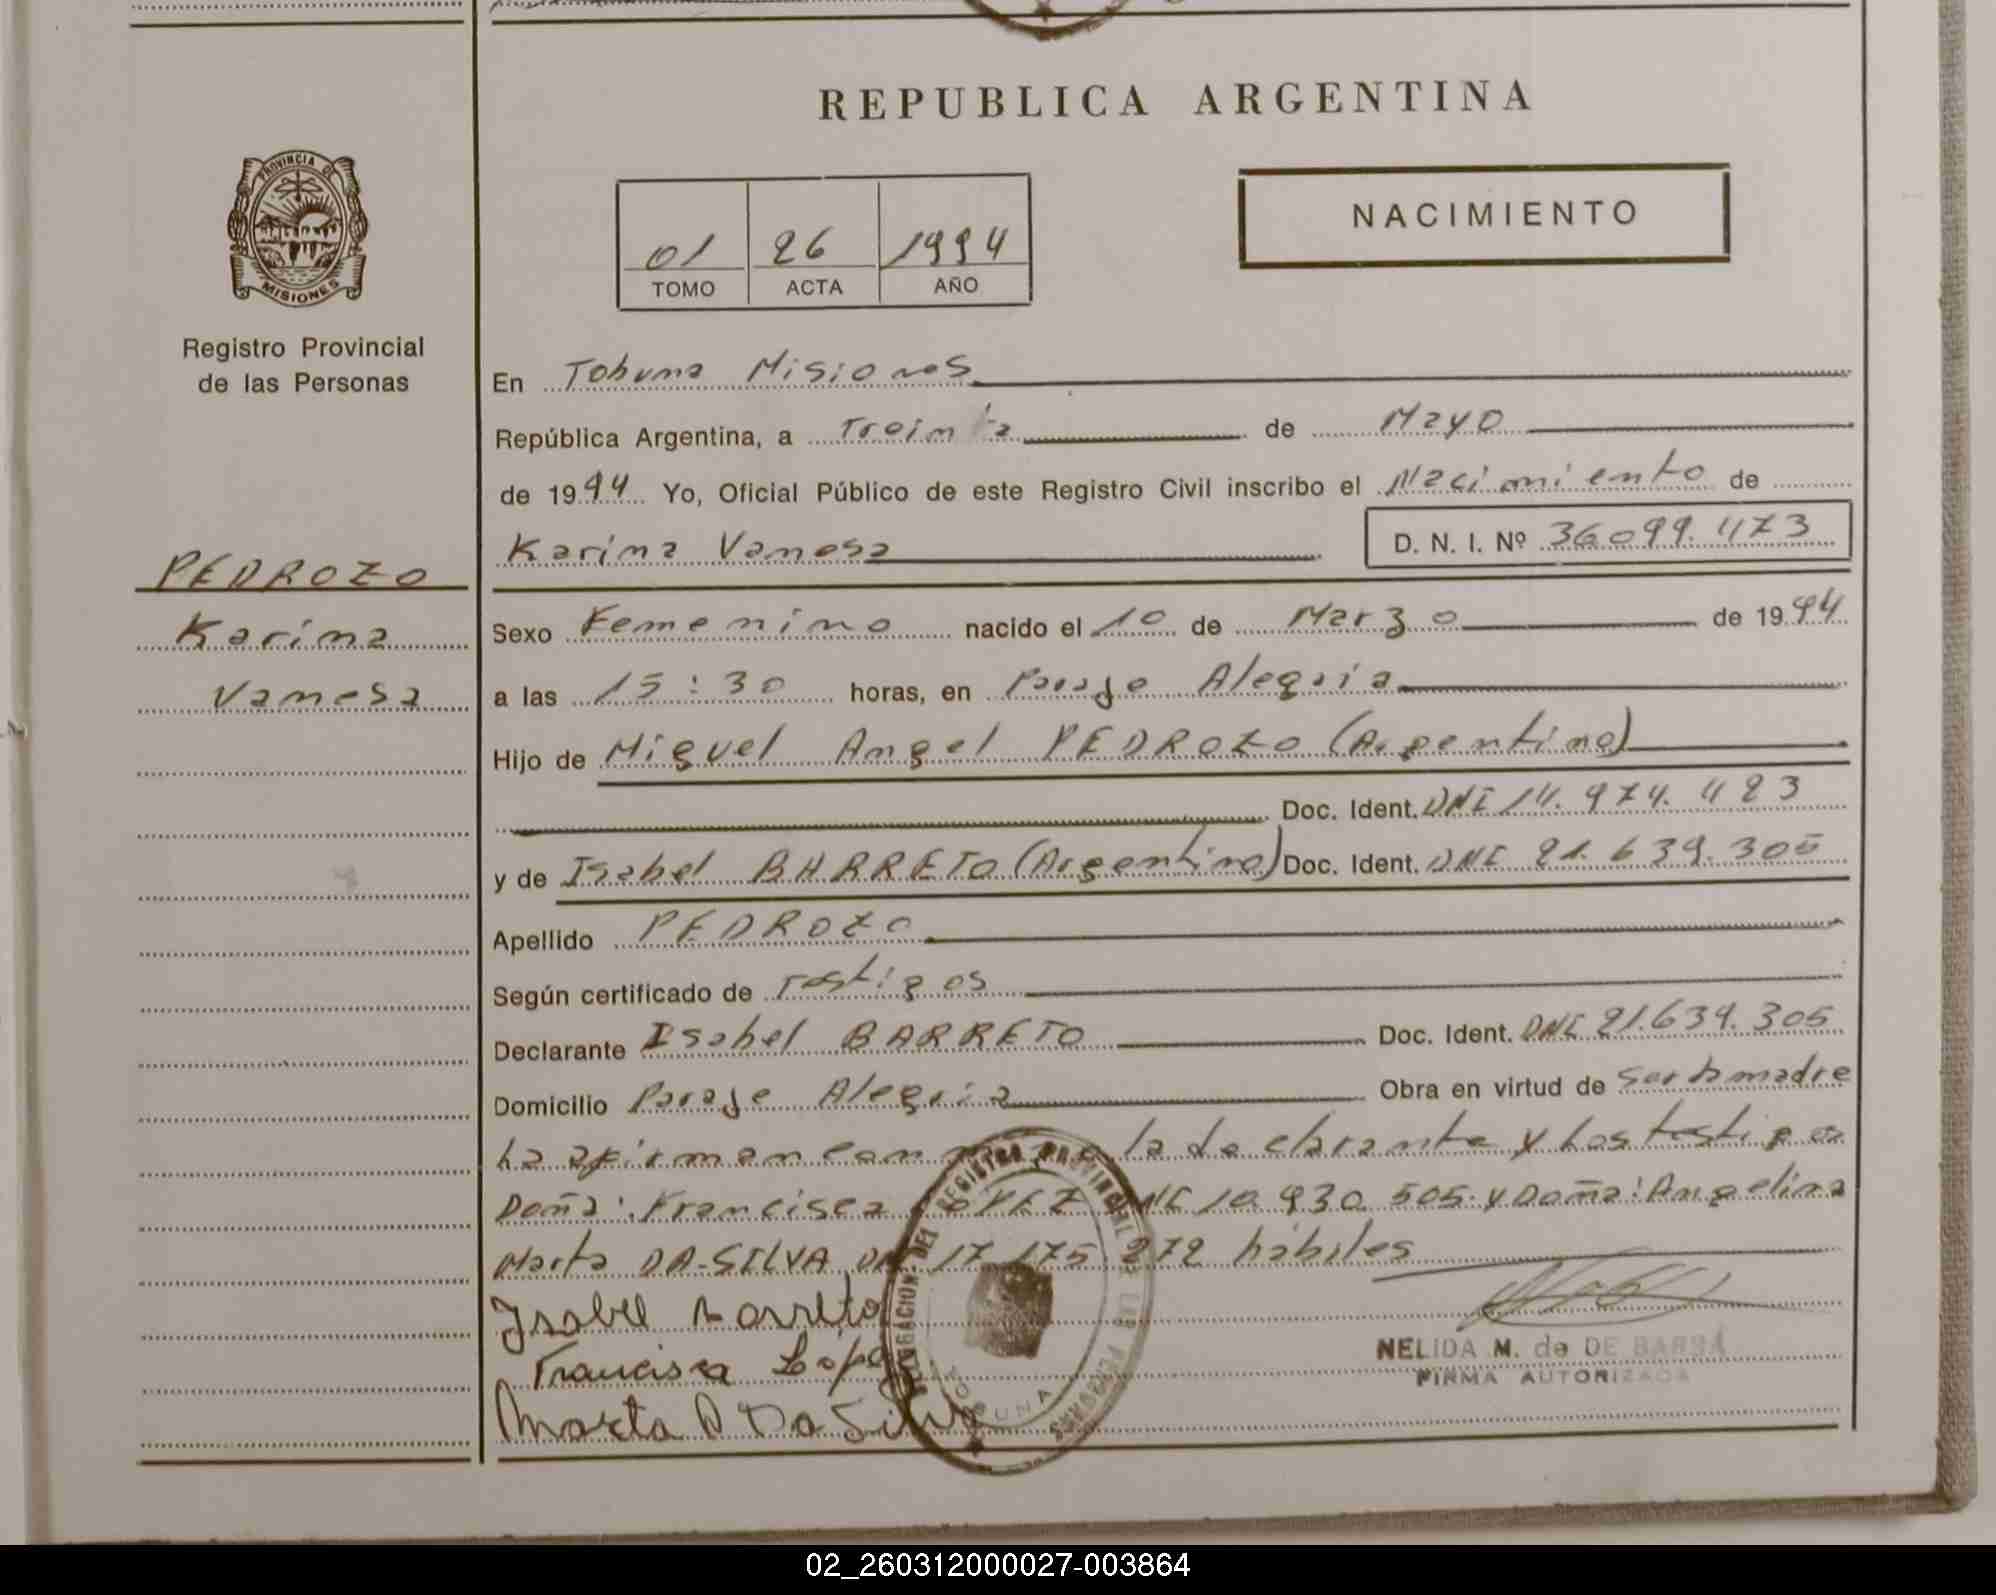 REPUBLICA ARGENTINA
PROVINCIA DE
MISIONES
Registro Provincial
de las Personas
01 26 1994
TOMO ACTA AÑO
NACIMIENTO
En Tobuna Misiones
República Argentina, a Treinta de Mayo
de 1994 Yo, Oficial Público de este Registro Civil inscribo el Nacimiento de
Karina Vanesa D. N. I. Nº 36099.473
PEDROZO
Karina
Vanesa
Sexo Femenino nacido el 10 de Marzo de 1994
a las 15:30 horas, en Paraje Alegria
Hijo de Miguel Angel PEDROZO (Argentino)
Doc. Ident. DNI 14.974.423
y de Isabel BARRETO (Argentina) Doc. Ident. DNI 21.639.305
Apellido PEDROZO
Según certificado de Testigos
Declarante Isabel BARRETO Doc. Ident. DNI 21.639.305
Domicilio Paraje Alegria Obra en virtud de ser la madre
La afirman con la declarante y Los testigos
Doña: Francisca 10.930.505. y Doña: Angelina
Marta DA-SILVA 17.175.272 hábiles
Isabel Barreto
Francisca Lopez
Marta A Da Silva
DELEGACION DEL REGISTRO PROVINCIAL DE LAS PERSONAS
TOBUNA
NELIDA M. de DE BARBA
FIRMA AUTORIZADA
02_260312000027-003864